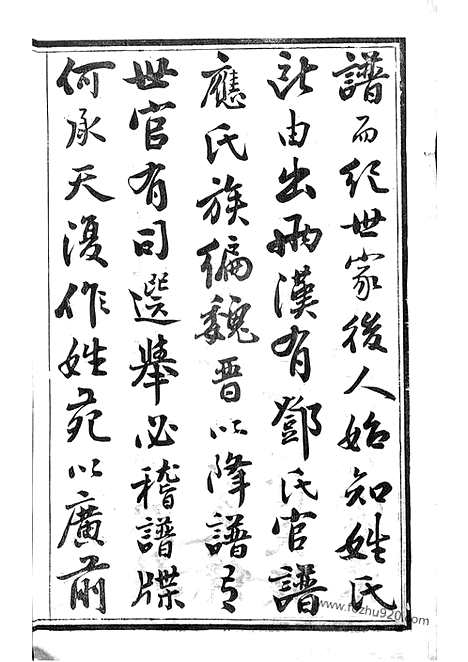 譜而紀世家後人始知姓氏
所由出兩漢有鄧氏官譜
應氏族編魏晉以降譜有
世官有司選舉必稽譜牒
何承天復作姓苑以廣前
www.fozhu920.com